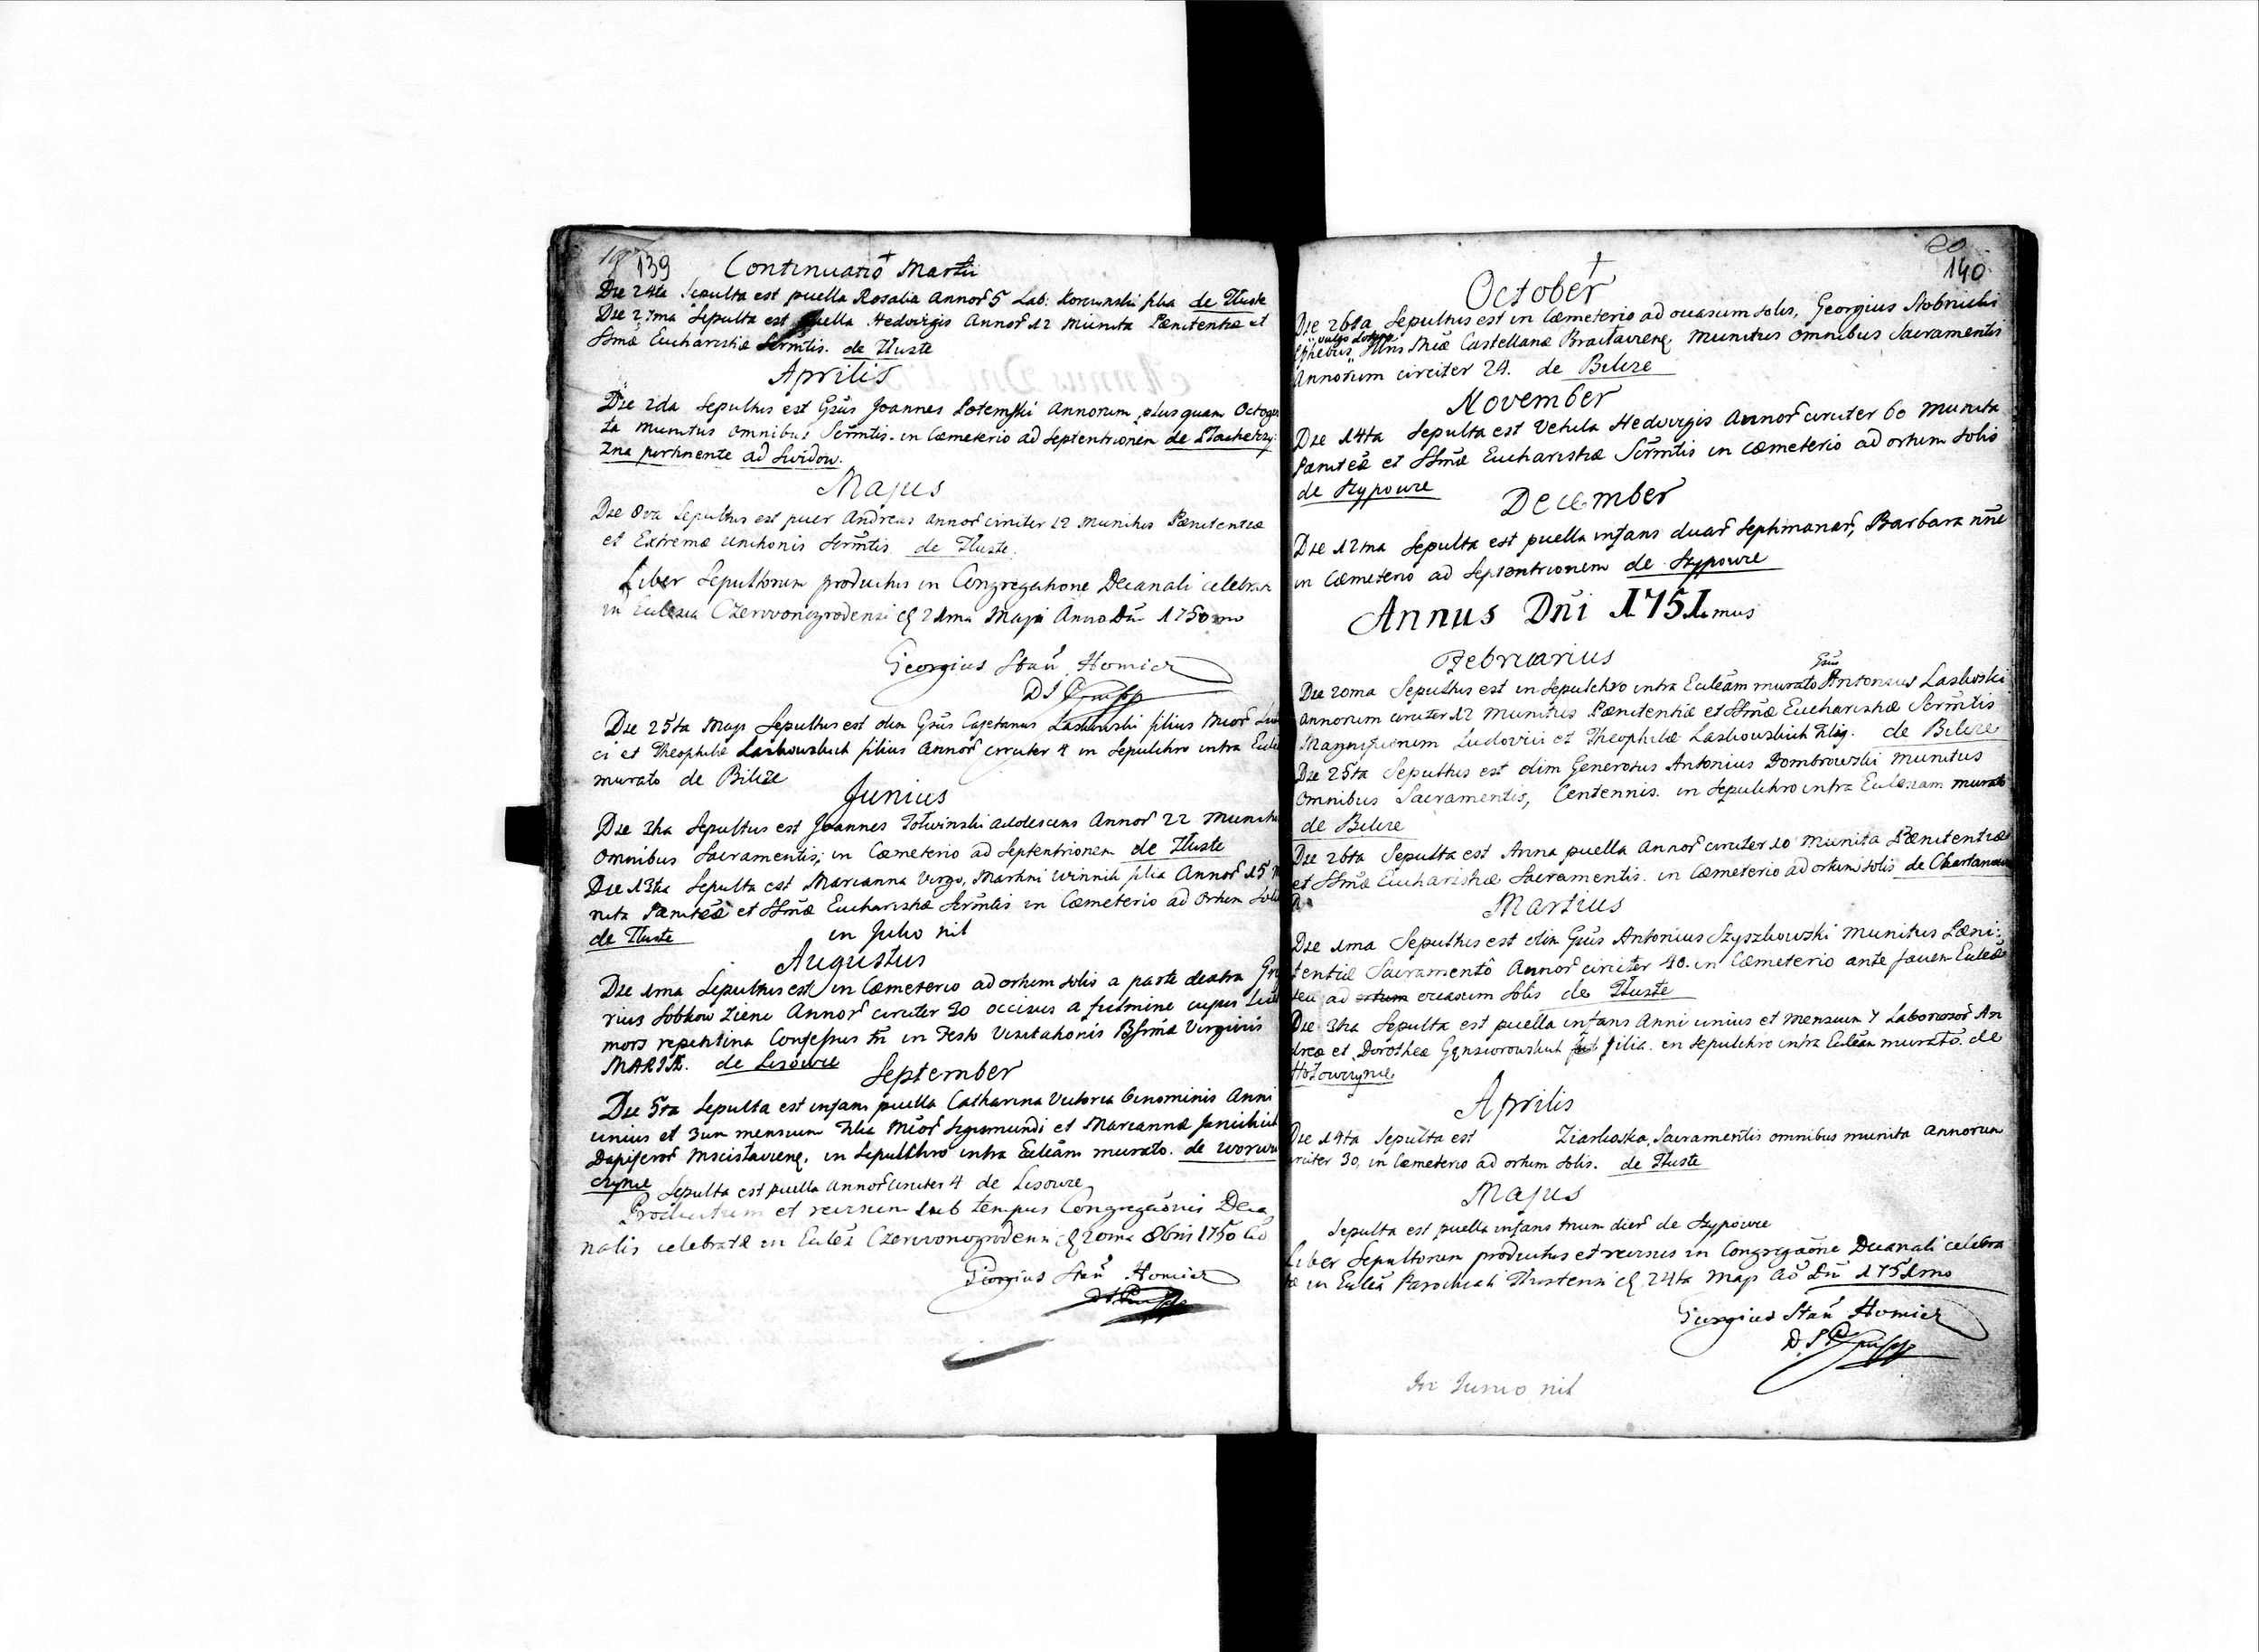 19 139 Continuatio Martii
Die 24ta Sepulta est puella Rosalia Annor 5 Lab: filia de Tłuste
Die 27ma Sepulta est puella Hedvigis Annor 12 munita Pænitentiæ et
SSmæ Eucharistiæ Scrmtis. de Tłuste
Aprilis
Die 2da Sepultus est Gsus Joannes Potemski Annorum plus quam Octogin
ta munitus omnibus Scrmtis. in Cæmeterio ad Septentrionem de
zna pertinente ad Swidow.
Majus
Die 8va Sepultus est puer Andreas annor circiter 12 munitus Pænitentiæ
et Extremæ Unctionis Scrmtis de Tłuste.
Liber Sepultorum productus in Congregatione Decanali celebrata
in Ecclesia Czerwonogrodensi 21ma Maji Anno Dni 1750mo
Georgius Stan Homicz
D I
Die 25ta Maji Sepultus est olim Gsus Cajetanus Laskowski filius Mcor Ludovi
ci et Theophilæ Laskowskich filius annor circiter 4 in Sepulchro intra Eccle
murato de Bilcze
Junius
Die 3tia Sepultus est Joannes Totwinski adolescens Annor 22 munitus
omnibus Sacramentis; in Cæmeterio ad Septentrionem de Tłuste
Die 13tia Sepulta est Marianna Virgo, Martini Winnik filia Annor 15 mu
nita Pænitæ et SSmæ Eucharistiæ Scrmtis in Cæmeterio ad Ortum Solis
de Tłuste in Julio nil
Augustus
Die 1ma Sepultus est in Cæmeterio ad ortum solis a parte dextra Gre
rius Sobkow Annor circiter 20 occisus a fulmine cujus licet
mors repentina Confessus tn in Festo Visitationis BSsmæ Virginis
MARIÆ. de Lisowce
September
Die 5ta Sepulta est infans puella Catharina Victoria binominis Anni
unius et 3um mensium filia Mcor Sigismundi et Mariannæ Janickich
Dapiferor Mscislavieng. in Sepulchro intra Ecleam murato. de worwu
czynce Sepulta est puella annor circiter 4 de Lisowce
Productum et revisum sub tempus Congregaonis Deca
nalis celebratæ in Eclea Czerwonogrodensi 20ma 8bris 1750 Ao
Georgius Stan Homicz
20
140
October
Die 26ta Sepultus est in Cæmeterio ad occasum solis, Georgius Stobnicki
vulgo
Ephebus Illris Mcæ Castellanæ Braclavieng. munitus omnibus Sacramentis
Annorum circiter 24. de Bilcze
November
Die 14ta Sepulta est Vetula Hedvigis Annor circiter 60 munita
Pænitæ et SSmæ Eucharistiæ Scrmtis in cæmeterio ad ortum solis
de Szypowce
December
Die 12ma Sepulta est puella infans duar septimanar, Barbara nne
in Cæmeterio ad Septentrionem de Szypowce
Annus Dni 1751mus
Februarius
Gsus
Die 20ma Sepultus est in Sepulchro intra Ecleam murato Antonius Laskoski
annorum circiter 12 munitus Pænitentiæ et SSmæ Eucharistiæ Scrmtis
Magnificorum Ludovici et Theophilæ Laskowskich Flig. de Bilcze
Die 25ta Sepultus est olim Generosus Antonius Dombrowski munitus
omnibus Sacramentis, Centennis. in Sepulchro intra Eclesiam murato
de Bilcze
Die 26ta Sepulta est Anna puella annor circiter 10 munita Pænitentiæ
et SSmæ Eucharistiæ Sacramentis. in Cæmeterio ad ortum solis de
Martius
Die 1ma Sepultus est olim Gsus Antonius Szyszkowski munitus Pæni:
tentiæ Sacramento Annor circiter 40. in Cæmeterio ante fauem Ecleæ
seu ad ortum occasum Solis de Tłuste
Die 3tia Sepulta est puella infans Anni unius et mensium 7 Laborosor An
dreæ et Dorotheæ Gąsiorowskich filia. in Sepulchro intra Ecleam murato. de
Hołowczynce
Aprilis
Die 14ta Sepulta est Ziarkoska, Sacramentis omnibus munita annorum
circiter 30, in Cæmeterio ad ortum solis. de Tłuste
Majus
Sepulta est puella infans trium dier de Szypowce
Liber Sepultorum productus et revisus in Congregaone Decanali celebra
ta in Eclea Parochiali Tłustensi 24ta Maji Ao Dni 1751mo
Georgius Stan Homicz
In Junio nil